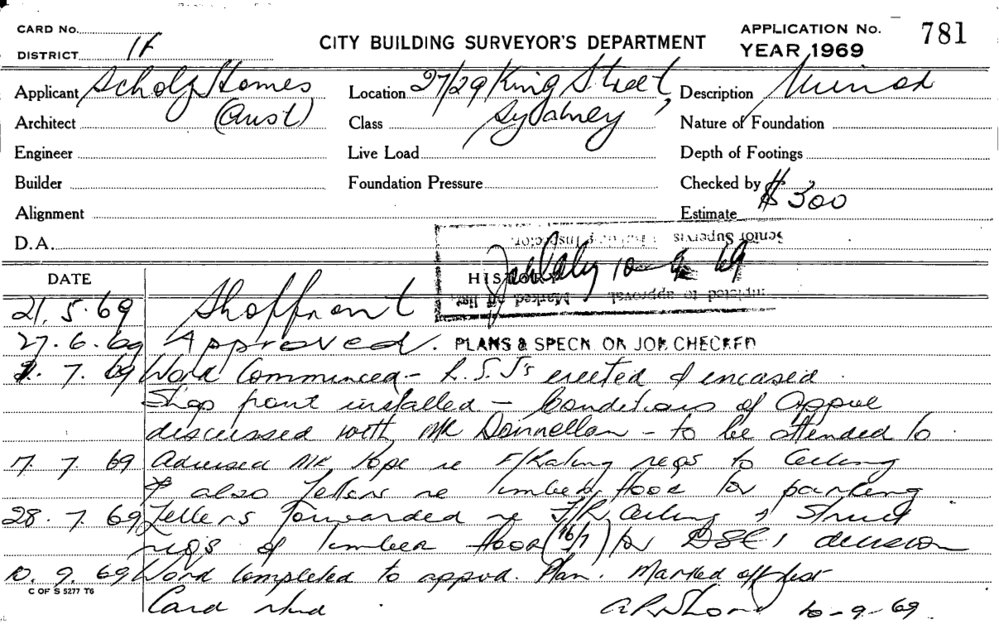 CARD No.
DISTRICT 1F
CITY BUILDING SURVEYOR'S DEPARTMENT
APPLICATION No. 781
YEAR 1969
Applicant Scholz Homes (Aust)
Location 27/29 King Street, Sydney
Description Minor
Architect
Class
Nature of Foundation
Engineer
Live Load
Depth of Footings
Builder
Foundation Pressure
Checked by
Alignment
Estimate $300
D.A.
Senior Supervis Inspector.
10-9-69
to approval Marked off list
DATE
HISTORY
21.5.69 Shopfront
27.6.69 Approved. PLANS & SPECN. ON JOB CHECKED
7.69 Work Commenced - R.S.J's erected & encased.
Shop front installed - Conditions of Appval
discussed with Mr Donnellan - to be attended to.
7.7.69 Advised Mr Pope re F/Rating reqs to Ceiling
& also letters re timber floor for parking
28.7.69 Letters forwarded re F/R Ceiling & Struct
reqs of timber floor (16/7) for decision
10.9.69 Work Completed to appvd. Plan. Marked off list
C OF S 5277 T6
Card rtnd 10-9-69.